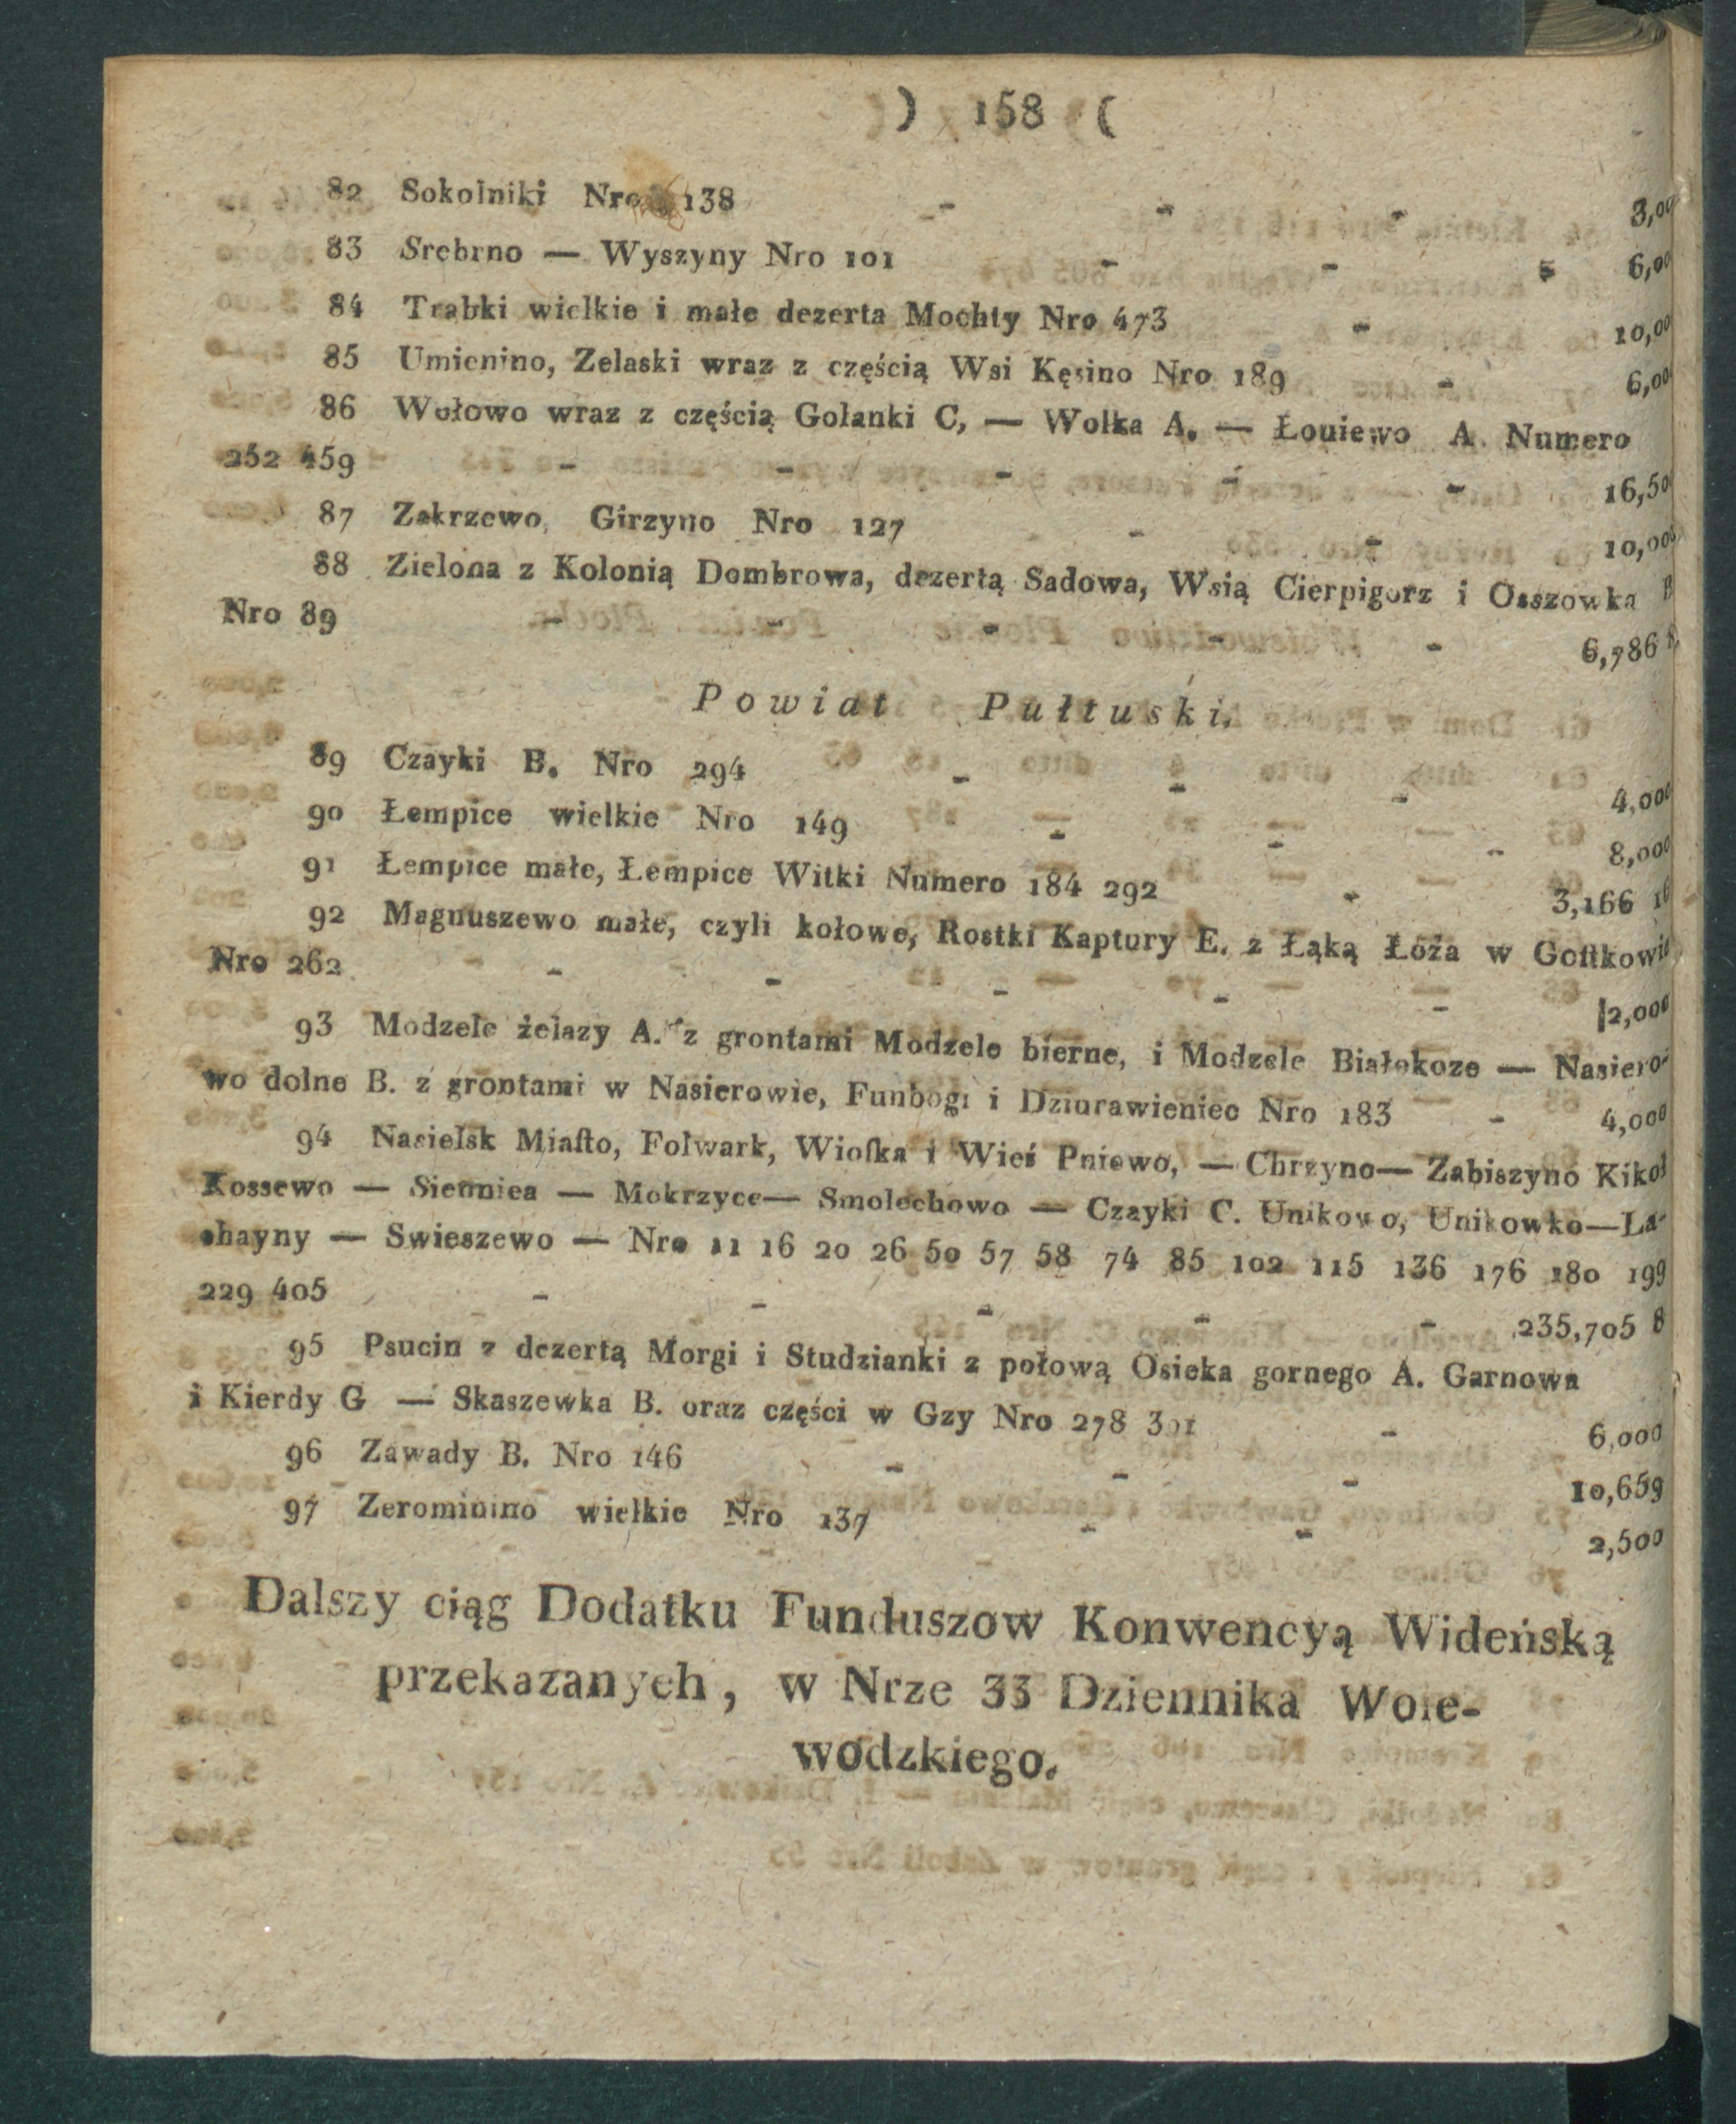 ) 158 (
82 Sokolniki Nro 138 - - - 3,00
83 Srebrno — Wyszyny Nro 101 - - - 6,00
84 Trabki wielkie i małe dezerta Mochty Nro 473 - 10,00
85 Umienino, Zelaski wraz z częścią Wsi Kęsino Nro 189 - 6,00
86 Wołowo wraz z częścią Golanki C, — Wolka A. — Łouiewo A. Numero
252 459 - - - - - 16,50
87 Zakrzewo, Girzyno Nro 127 - - 10,000
88 Zielona z Kolonią Dombrowa, dezertą Sadowa, Wsią Cierpigorz i Osszowka B
Nro 89 - - - - - 6,786
Powiat Pułtuski.
89 Czayki B. Nro 294 - - - 4,000
90 Łempice wielkie Nro 149 - - - 8,000
91 Łempice małe, Łempice Witki Numero 184 292 - 3,166 16
92 Magnuszewo małe, czyli kołowe, Rostki Kaptury E. z Łąką Łoża w Gottkowie
Nro 262 - - - - - 12,000
93 Modzele żelazy A. z grontami Modzele bierne, i Modzele Białokoze — Nasiero-
wo dolne B. z grontami w Nasierowie, Funbogi i Dziurawieniec Nro 183 - 4,000
94 Nasielsk Miaſto, Folwark, Wioſka i Wieś Pniewo, — Chrzyno — Zabiszyno Kikoł
Kossewo — Siennica — Mokrzyce — Smolechowo — Czayki C. Unikowo, Unikowko — La-
chayny — Swieszewo — Nro 11 16 20 26 50 57 58 74 85 102 115 136 176 180 199
229 405 - - - - - 235,705 8
95 Psucin z dezertą Morgi i Studzianki z połową Osieka gornego A. Garnowa
i Kierdy G — Skaszewka B. oraz części w Gzy Nro 278 301 - 6,000
96 Zawady B. Nro 146 - - - 10,659
97 Zerominino wielkie Nro 137 - - 2,500
Dalszy ciąg Dodatku Funduszow Konwencyą Wideńską
przekazanych, w Nrze 33 Dziennika Woie-
wodzkiego.